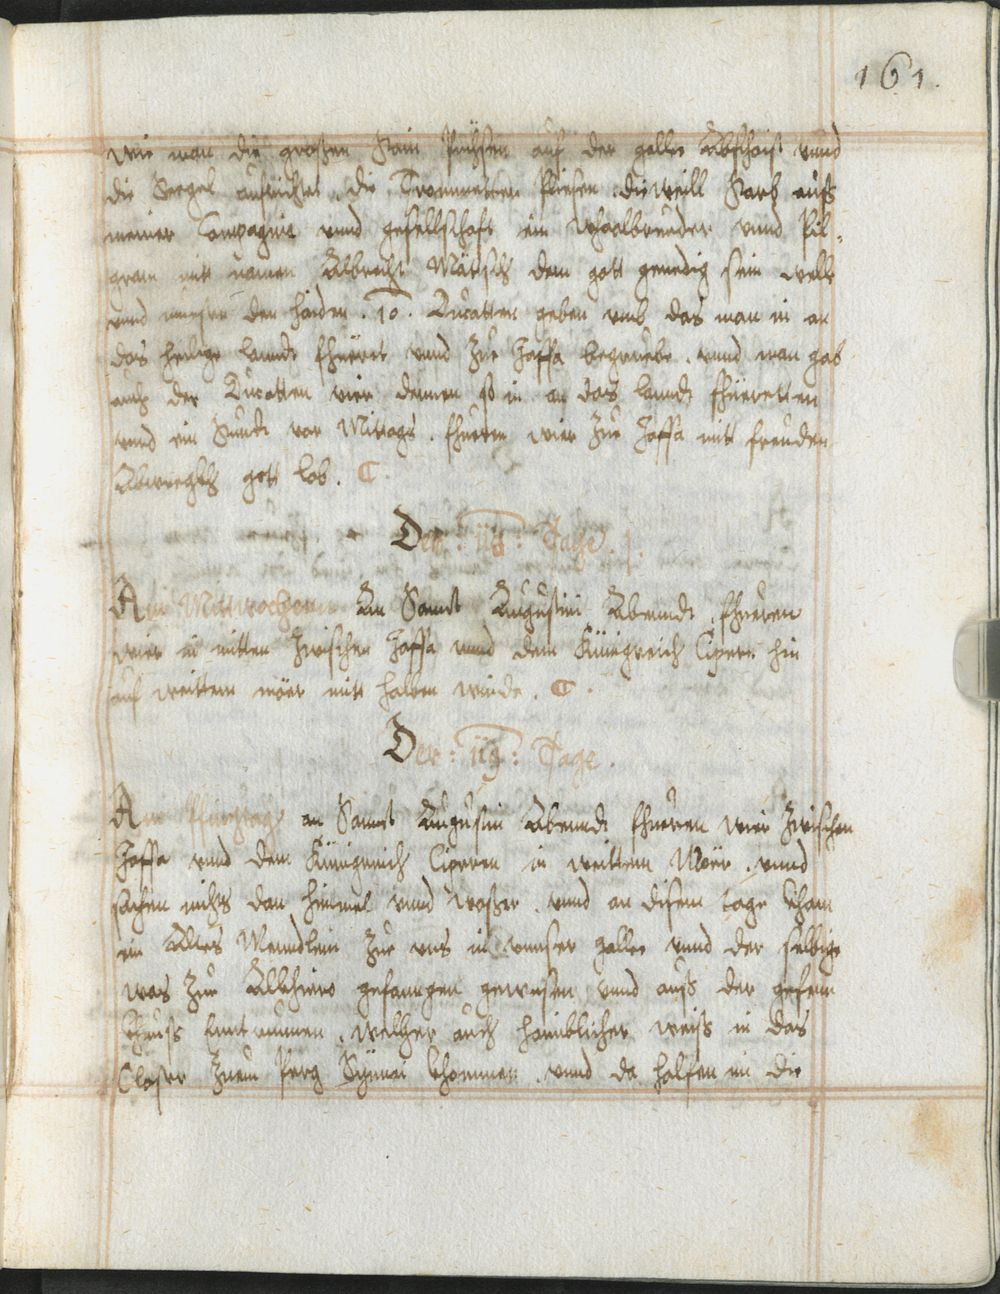 161.
wie man die großen Stain Puchsen auf der gallee Abschoist vnnd
die Seegel aufrichtet, die Trommetten Pliesen, dieweill starb auß
meiner Compagnie vnnd gesellschaft ein Waalbrueder vnnd Pil-
gram mit namen Albrecht Mätsch dem gott genedig sein welle
vnnd muesen den haiden .10. Ducatten geben vmb das man in an
das heilige lanndt fhüert vnnd Zue Jaffa begruebe . vnnd man gab
auch der Ducatten vier denen so in an das lanndt fhüeretten
vnnd ein Stundt vor Mitags . fhueren wier Zue Jaffa mitt freuden
Abwegkh gott lob.
Der : 118 : Tage.
Am Mittwochen An Sannt Augustini Abenndt, fhueren
wier in mitten Zwischen Jaffa vnnd dem Künigreich Cipern hin
auf weittem möer mitt halben winde.
Der : 119 : Tage.
Am Pfinztag an Sannt Augustin Abenndt fhueren wier Zwischen
Jaffa vnnd dem Künigreich Cipern in weittem Möer . vnnd
sachen nichts dan himmel vnnd waßer, vnnd an disem tage kham
ein Altes Menndlein Zue vns in vnnser gallee vnnd der selbige
was Zue Alkhiero gefanngen gewesen vnnd auß der gefenn
khnuß Enntrunnen, welcher auch haimblicher weiß in das
Closter Zuem Perg Synnai khommen, vnnd da halfen im die